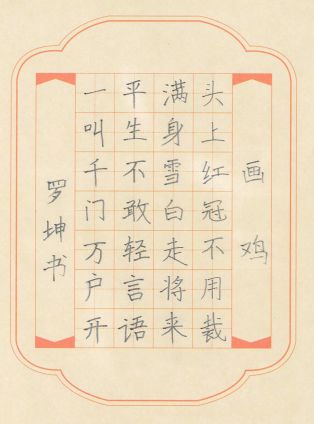 画鸡
头上红冠不用裁
满身雪白走将来
平生不敢轻言语
一叫千门万户开
罗坤书